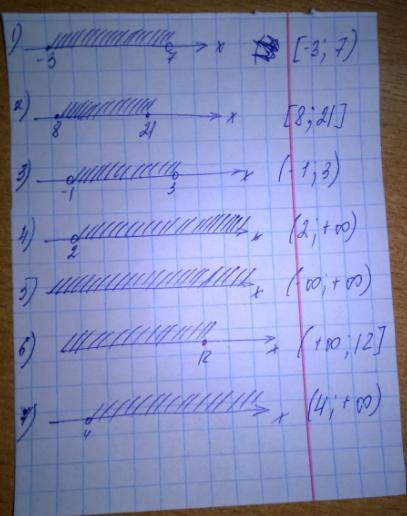 1) -3 7 x [-3; 7)
2) 8 21 x [8; 21]
3) -1 3 x (-1; 3)
4) 2 x (2; +∞)
5) x (-∞; +∞)
6) 12 x (+∞; 12]
7) 4 x (4; +∞)